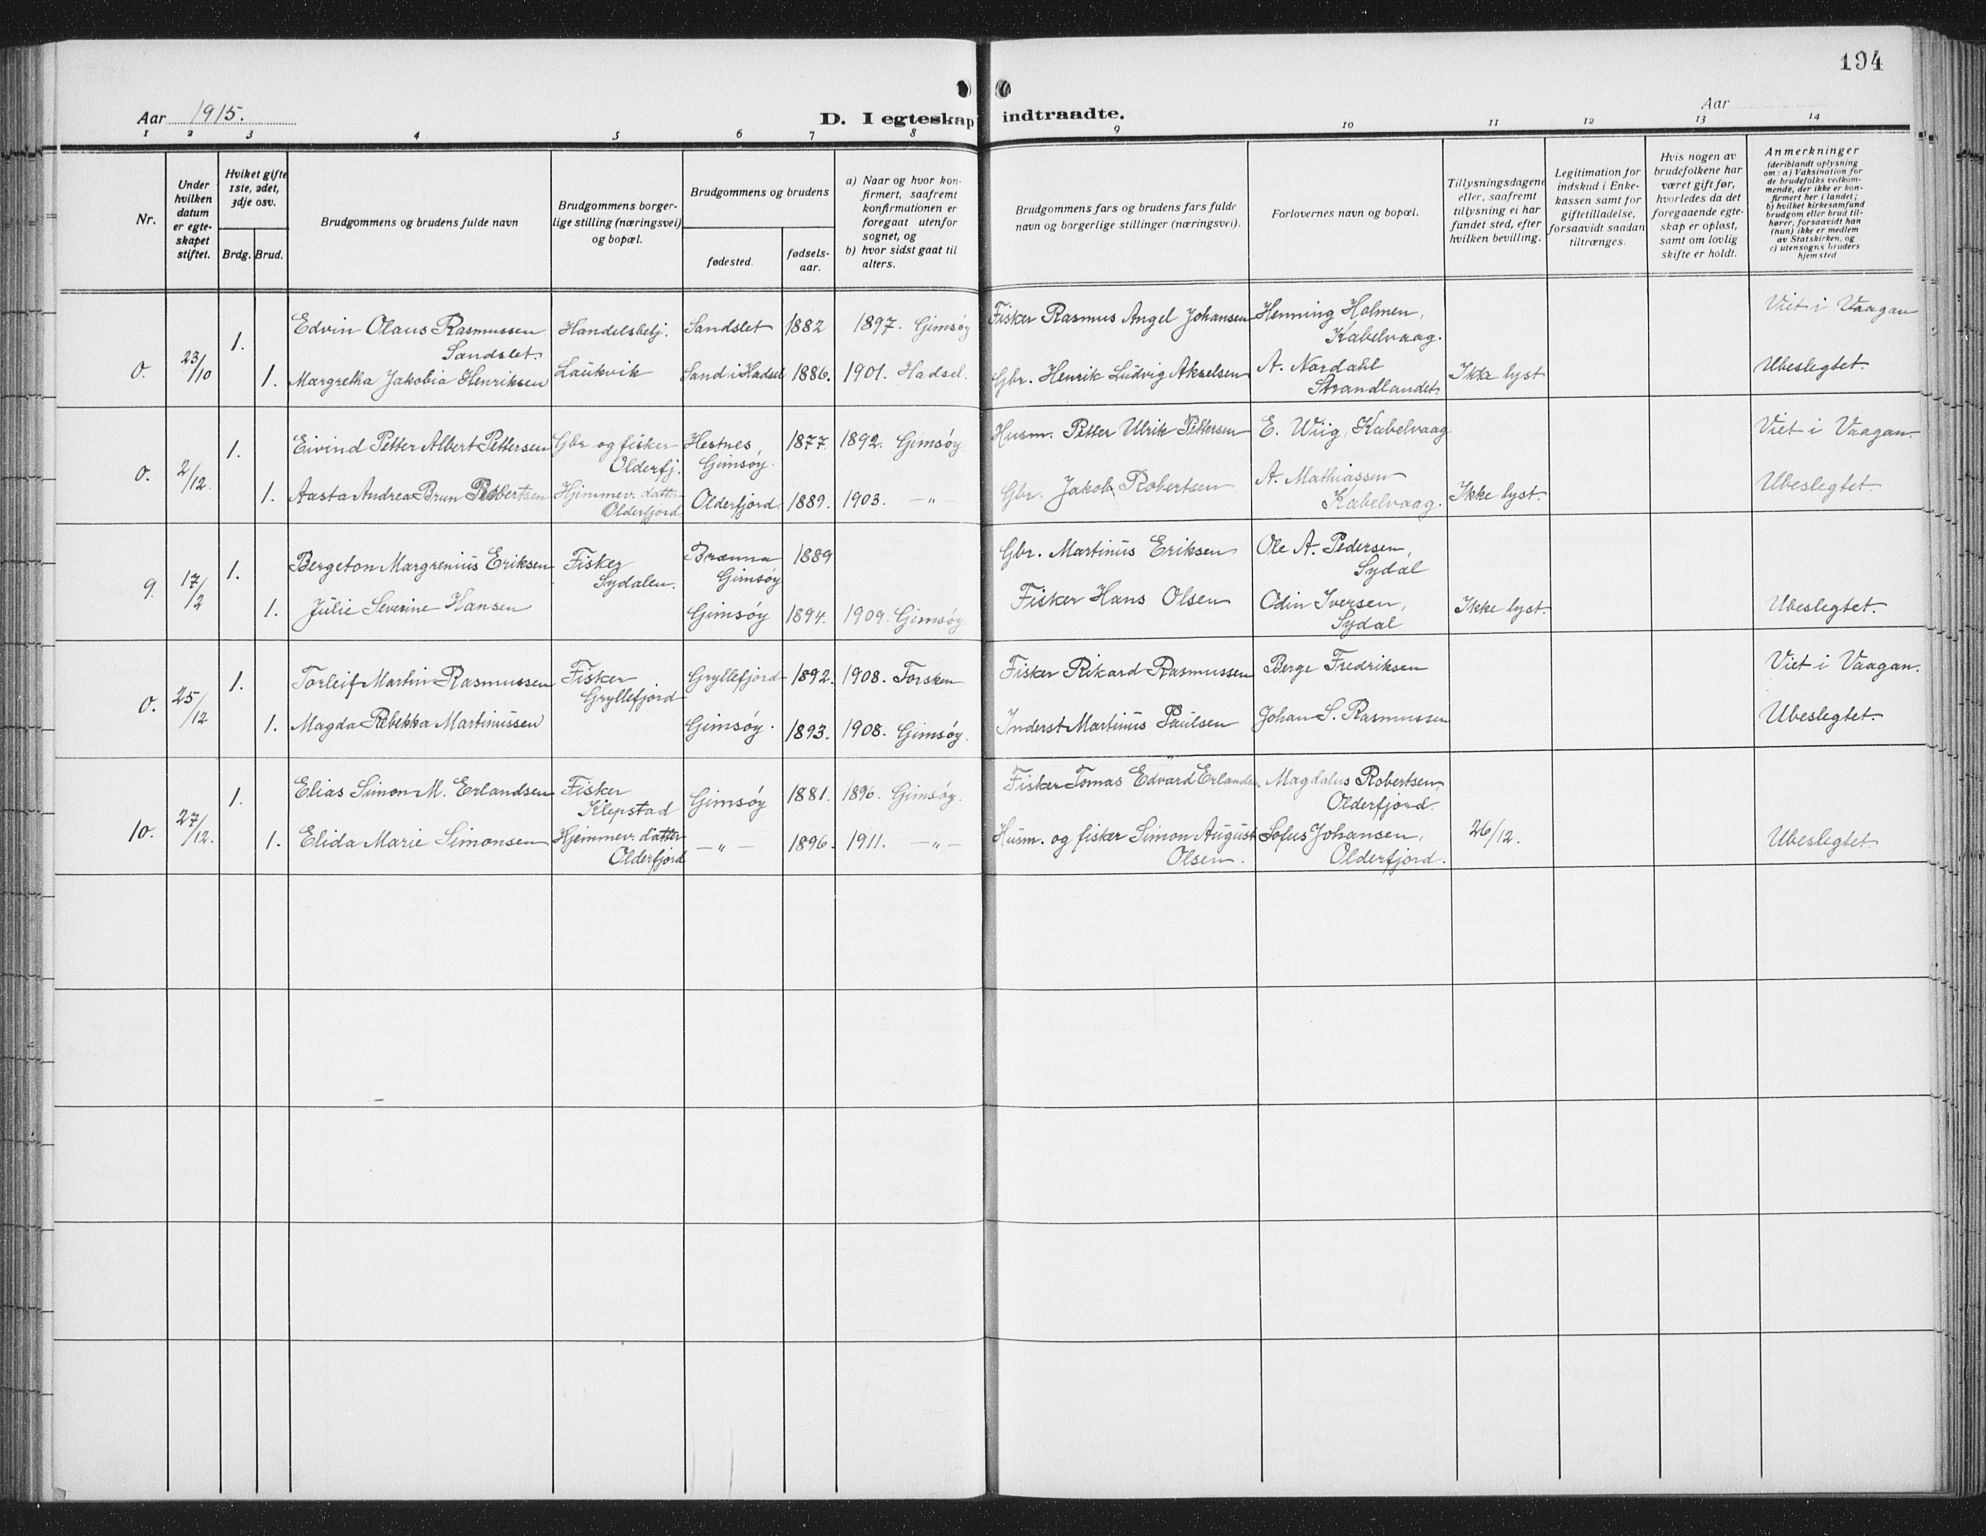 194
Aar 1915.
D. I egteskap indtraadte.
Aar
1 2 3 4 5 6 7 8 9 10 11 12 13 14
Nr.
Under hvilken datum er egteskapet stiftet.
Hviket gifte 1ste, 2det, 3dje osv.
Brdg. Brud.
Brudgommens og brudens fulde navn
Brudgommens borgerlige stilling (næringsvei) og bopæl.
Brudgommens og brudens
fødested.
fødselsaar.
a) Naar og hvor konfirmert, saafremt konfirmationen er foregaat utenfor sognet, og
b) hvor sidst gaat til alters.
Brudgommens fars og brudens fars fulde navn og borgerlige stillinger (næringsvei).
Forlovernes navn og bopæl.
Tillysningsdagene eller, saafremt tillysning ei har fundet sted, efter hvilken bevilling.
Legitimation for indskud i Enkekassen samt for giftetilladelse, forsaavidt saadan tiltrænges.
Hvis nogen av brudefolkene har været gift før, hvorledes da det foregaaende egteskap er opløst, samt om lovlig skifte er holdt.
Anmerkninger (deriblandt oplysning om: a) Vaksination for de brudefolks vedkommende, der ikke er konfirmert her i landet; b) hvilket kirkesamfund brudgom eller brud tilhører, forsaavidt han (hun) ikke er medlem av Statskirken, og c) utensogns bruders hjemsted
0. 23/10 1. Edvin Olaus Rasmussen Sandslet. Handelsbetj. Laukvik Sandslet 1882 1897. Gimsöy Fisker Rasmus Angel Johansen Henning Holmen, Kabelvaag. Viet i Vaagan
1. Margretha Jakobia Henriksen Sand i Hadsel 1886. 1901. Hadsel. Gbr. Henrik Ludvig Akselsen A. Nordahl Strandlandet. Ikke lyst Ubeslegtet.
0. 2/12. 1. Eivind Petter Albert Pettersen Gbr og fisker Olderfj. Hestnes, Gimsöy. 1877 1892. Gimsöy. Husm. Petter Ulrik Pettersen E. Wiig, Kabelvaag Viet i Vaagan.
1. Aasta Andrea Brun Robertsen Hjemmev. datter Olderfjord Olderfjord. 1889. 1903. —"— Gbr. Jakob Robertsen A. Mathiassen Kabelvaag. Ikke lyst. Ubeslegtet.
9. 17/2 1. Bergeton Margrenius Eriksen Fisker Sydalen. Brænna Gimsöy 1889 Gbr. Martinus Eriksen Ole A. Pedersen, Sydal
1. Julie Severine Hansen Gimsöy 1894. 1909. Gimsöy Fisker Hans Olsen Odin Iversen, Sydal Ikke lyst. Ubeslegtet.
0. 25/12 1. Torleif Martin Rasmussen Fisker Gryllefjord Gryllefjord 1892. 1908. Torsken Fisker Rikard Rasmussen Berge Fredriksen Viet i Vaagan.
1. Magda Rebekka Martinussen Gimsöy. 1893. 1908. Gimsöy. Inderst Martinus Paulsen Johan S. Rasmussen Ubeslegtet.
10. 27/12. 1. Elias Simon M. Erlandsen Fisker Klepstad Gimsöy 1881. 1896. Gimsöy. Fisker Tomas Edvard Erlandsen Magdalus Robertsen, Olderfjord.
1. Elida Marie Simonsen Hjemmev. datter Olderfjord —"— 1896. 1911. —"— Husm. og fisker Simon August Olsen. Sofus Johansen, Olderfjord. 26/12. Ubeslegtet